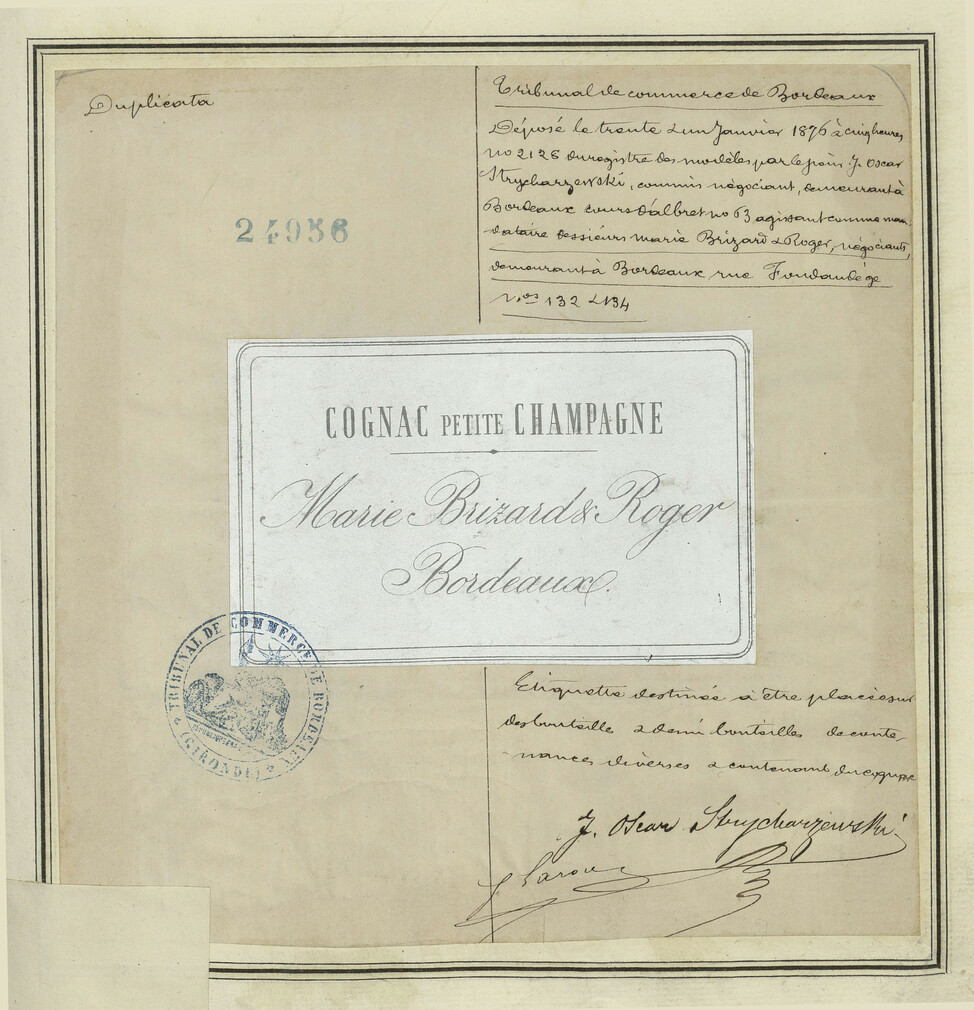 Duplicata
24956
Tribunal de commerce de Bordeaux
Déposé le trente & un Janvier 1876 à cinq heures
no 2128 du registre des modèles par le sieur J. Oscar
Strycharzewski, commis négociant, demeurant à
Bordeaux cours d'albret no 63 agissant comme man
dataire des sieurs Marie Brizard & Roger, négociants,
demeurant à Bordeaux rue Fondaudège
nos 132 & 134
COGNAC PETITE CHAMPAGNE
Marie Brizard & Roger
Bordeaux.
TRIBUNAL DE COMMERCE DE BORDEAUX
(GIRONDE)
Etiquette destinée a être placée sur
des bouteille & demi bouteilles de conte
nances diverses & contenant du cognac
J. Oscar Strycharzewski